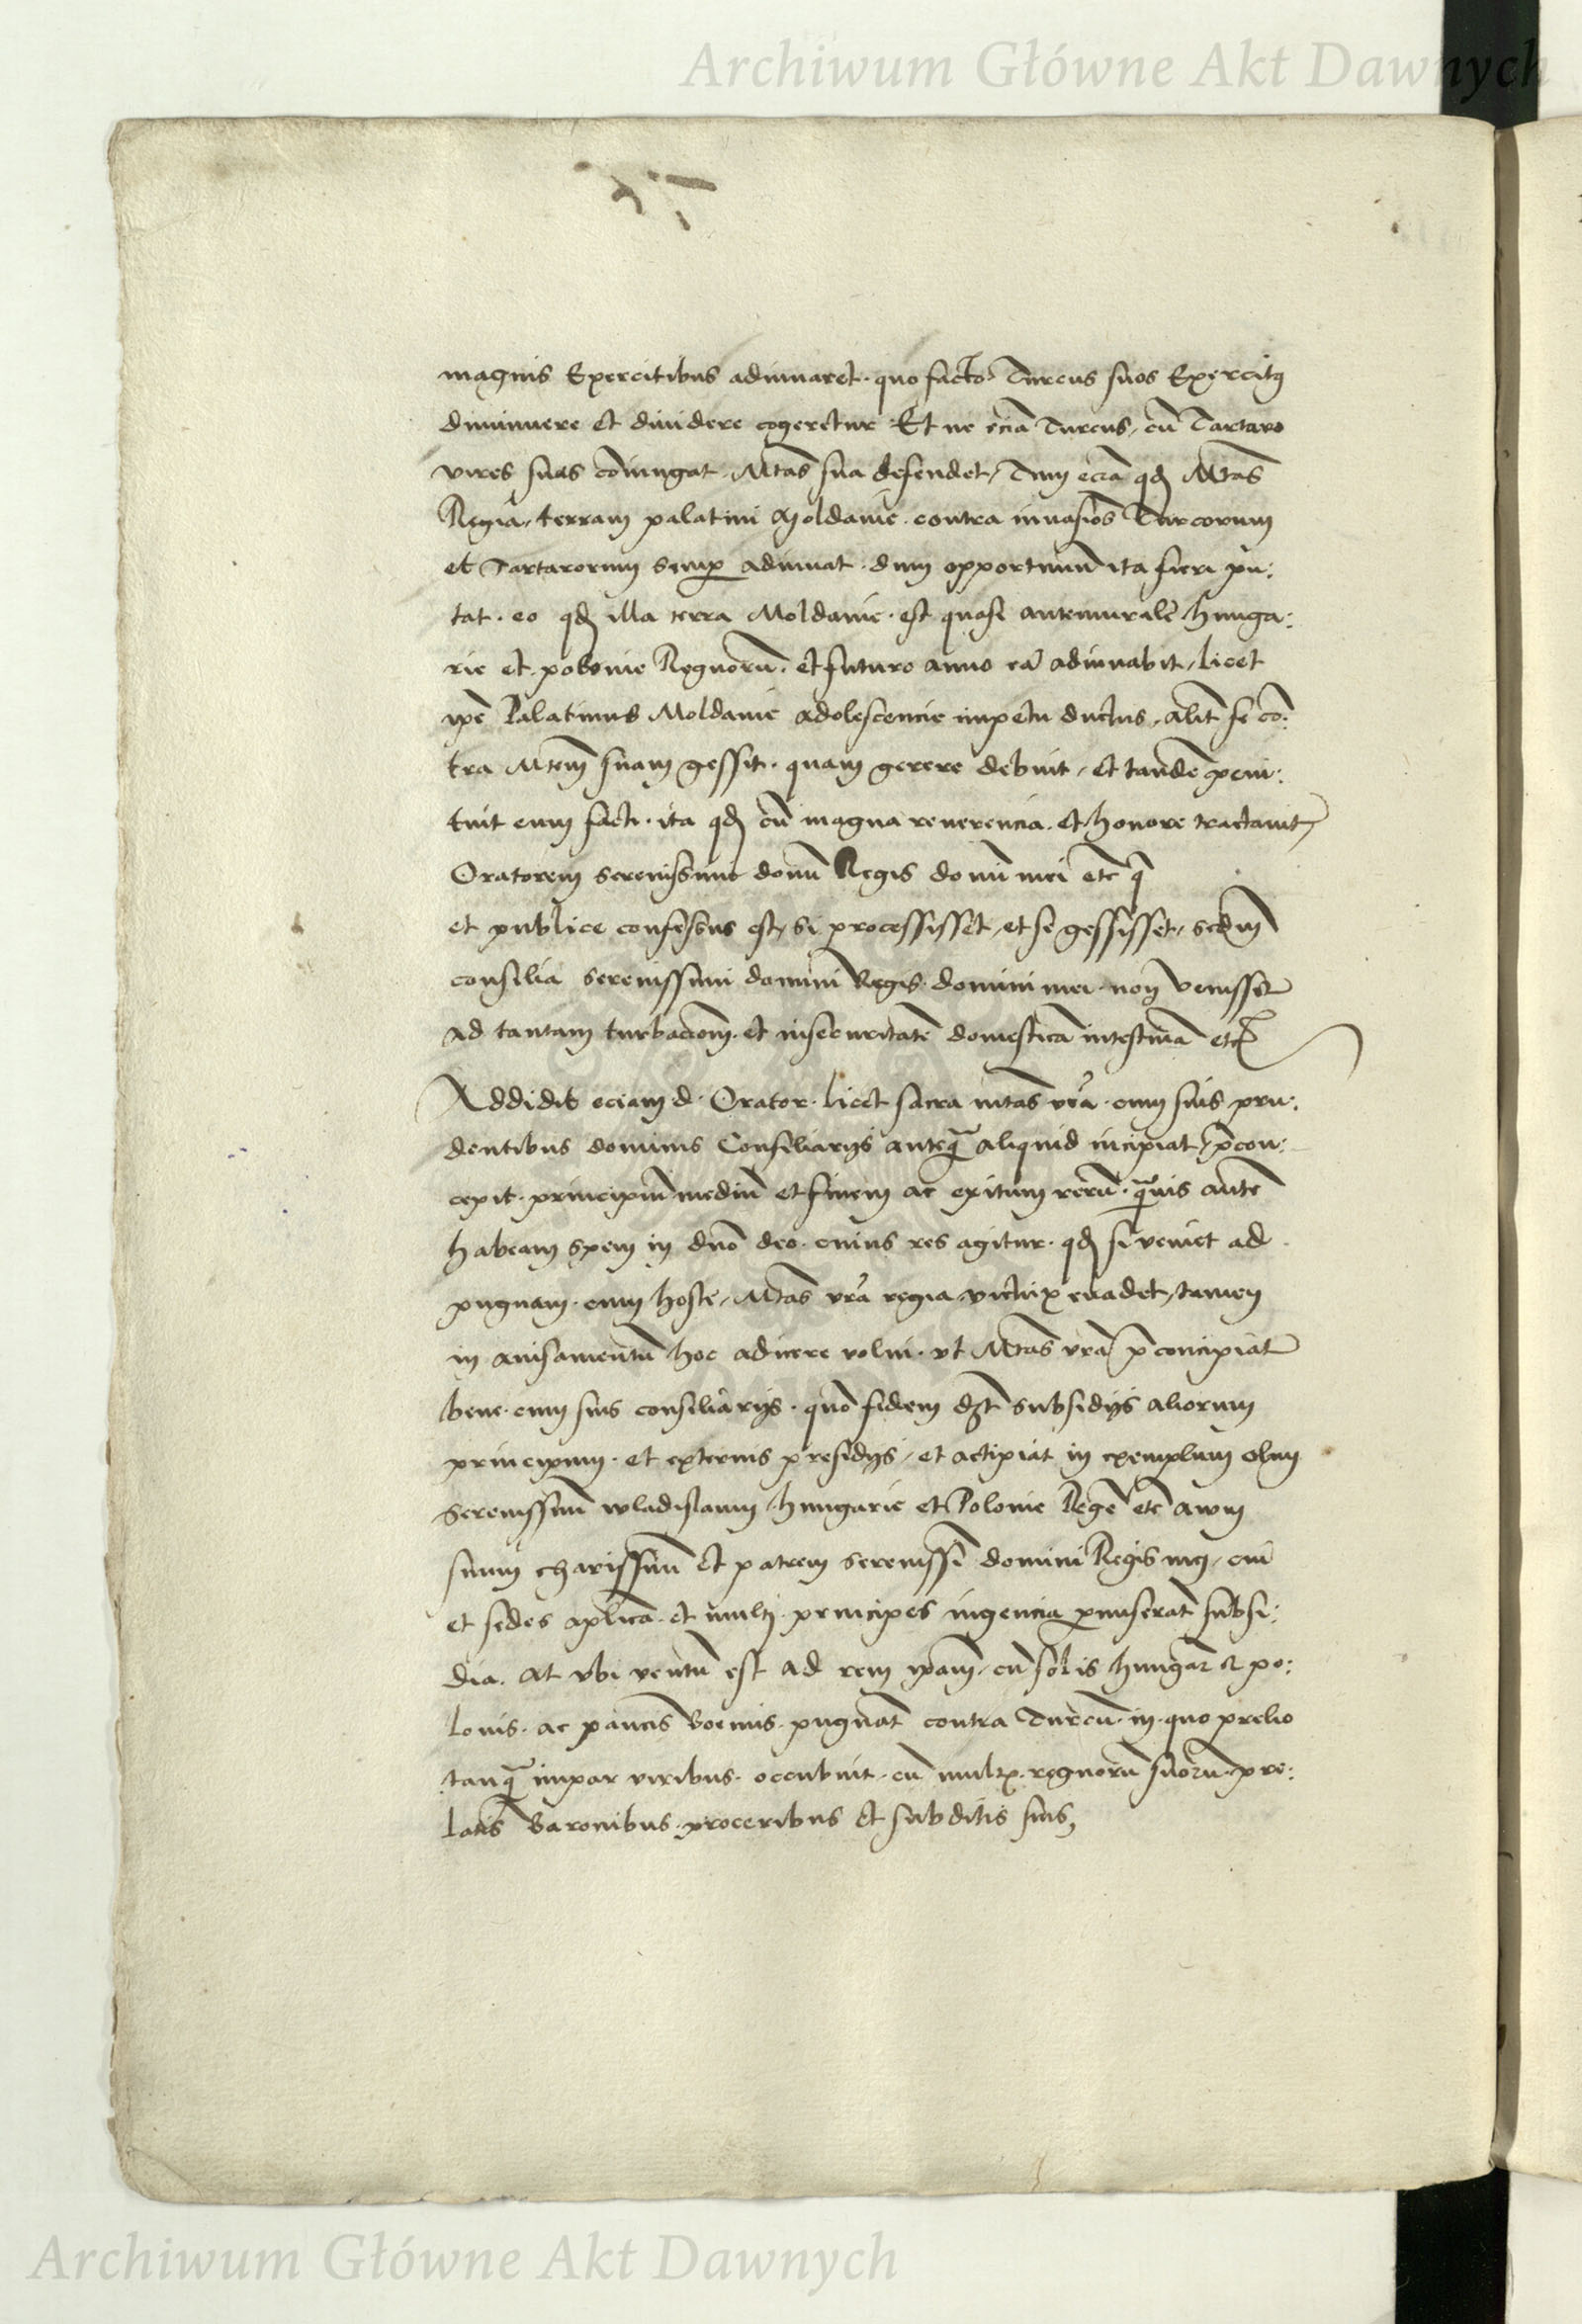 Archiwum Główne Akt Dawnych
magnis Exercitibus adiuuaret. quo facto Turcus suos Exercitꝯ
diminuere et diuidere cogeretur Et ne eciā Turcus, cū Tartaro
vires suas coniungat. Mtas sua defendet, Tum eciā qd Mtas
Regia, terram palatini Moldauie. contra inuasiōs Turcorum
et Tartarorum semꝑ adiuuat. dum opportunū ita fieri pu:
tat. eo qd illa terra Moldauie. est quasi antemurale hunga:
rie et polonie Regnorū. et futuro anno eā adiuuabit, licet
ipē Palatinus Moldauie adolescencie impetu ductus, alit̄ se cō:
tra Mtem suam gessit. quam gerere debuit, et tandē peni:
tuit eum facti. ita qd cū magna reuerencia. et honore tractauit,
Oratorem serenissimi domī Regis domī mei etc q̄
et publice confessus est, si processisset, et se gessisset, scdm
consilia serenissimi domini Regis. domini mei. non venisset
ad tantam turbacōem. et insecuritatē domesticā intestinā etc
Addidit eciam d. Orator. licet sacra mtas vrā. cum suis pru:
dentibus dominis Consiliarijs anteq̄ aliquid incipiat, p̄con:
cepit. principiū mediū et finem ac exitum rerū. q̄uis autē
habeam spem in dnō deo. cuius res agitur. qd si veniet ad
pugnam. cum hoste, Mtas vrā regia victrix euadet, tamen
in auisamentū hoc adiicere volui. vt Mtas vrā p̄concipiat
bene. cum suis consiliarijs. quō fidem dȝt subsidijs aliorum
principum. et externis presidijs, et accipiat in exemplum olim
Serenissimū wladislaum hungarie et Polonie Regē etc awm
suum charissimū et patrem serenissī domini Regis mei, cui
et sedes aplica. et multi principes ingencia ꝓmiserāt subsi:
dia. at vbi ventū est ad rem ipam, cū solis hungaꝛ et po:
lonis. ac paucis Boemis. pugnāt contra Turcū. in quo prelio
tanq̄ impar viribus. occubuit. cū mult. regnorū suorū. pre:
latis Baronibus. proceribus et subditis suis,
Archiwum Główne Akt Dawnych